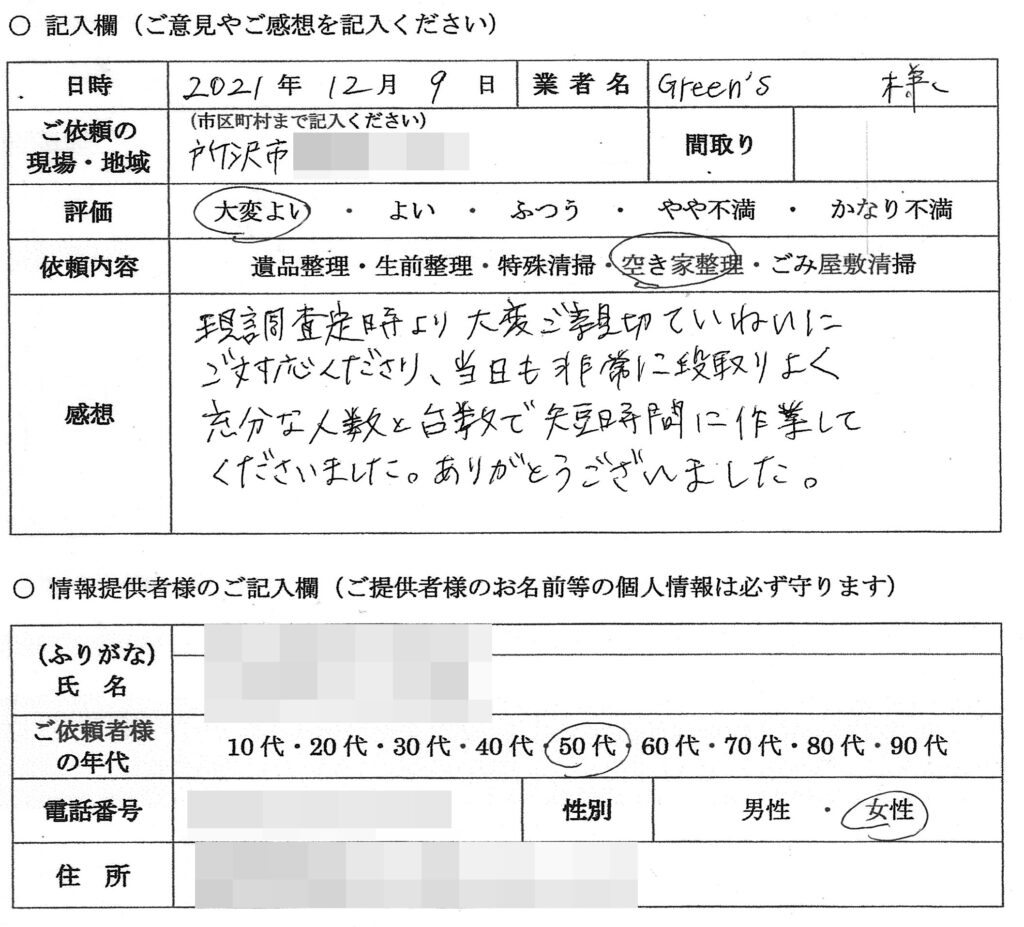 ○ 記入欄（ご意見やご感想を記入ください）
日時 2021年 12月 9日 業者名 Green's 様
ご依頼の現場・地域 (市区町村まで記入ください) 所沢市 間取り
評価 大変よい ・ よい ・ ふつう ・ やや不満 ・ かなり不満
依頼内容 遺品整理・生前整理・特殊清掃・空き家整理・ごみ屋敷清掃
感想
現調査定時より大変ご親切ていねいに
ご対応くださり、当日も非常に段取りよく
充分な人数と台数で短時間に作業して
くださいました。ありがとうございました。
○ 情報提供者様のご記入欄（ご提供者様のお名前等の個人情報は必ず守ります）
(ふりがな)
氏 名
ご依頼者様の年代 10代・20代・30代・40代・50代・60代・70代・80代・90代
電話番号 性別 男性 ・ 女性
住 所